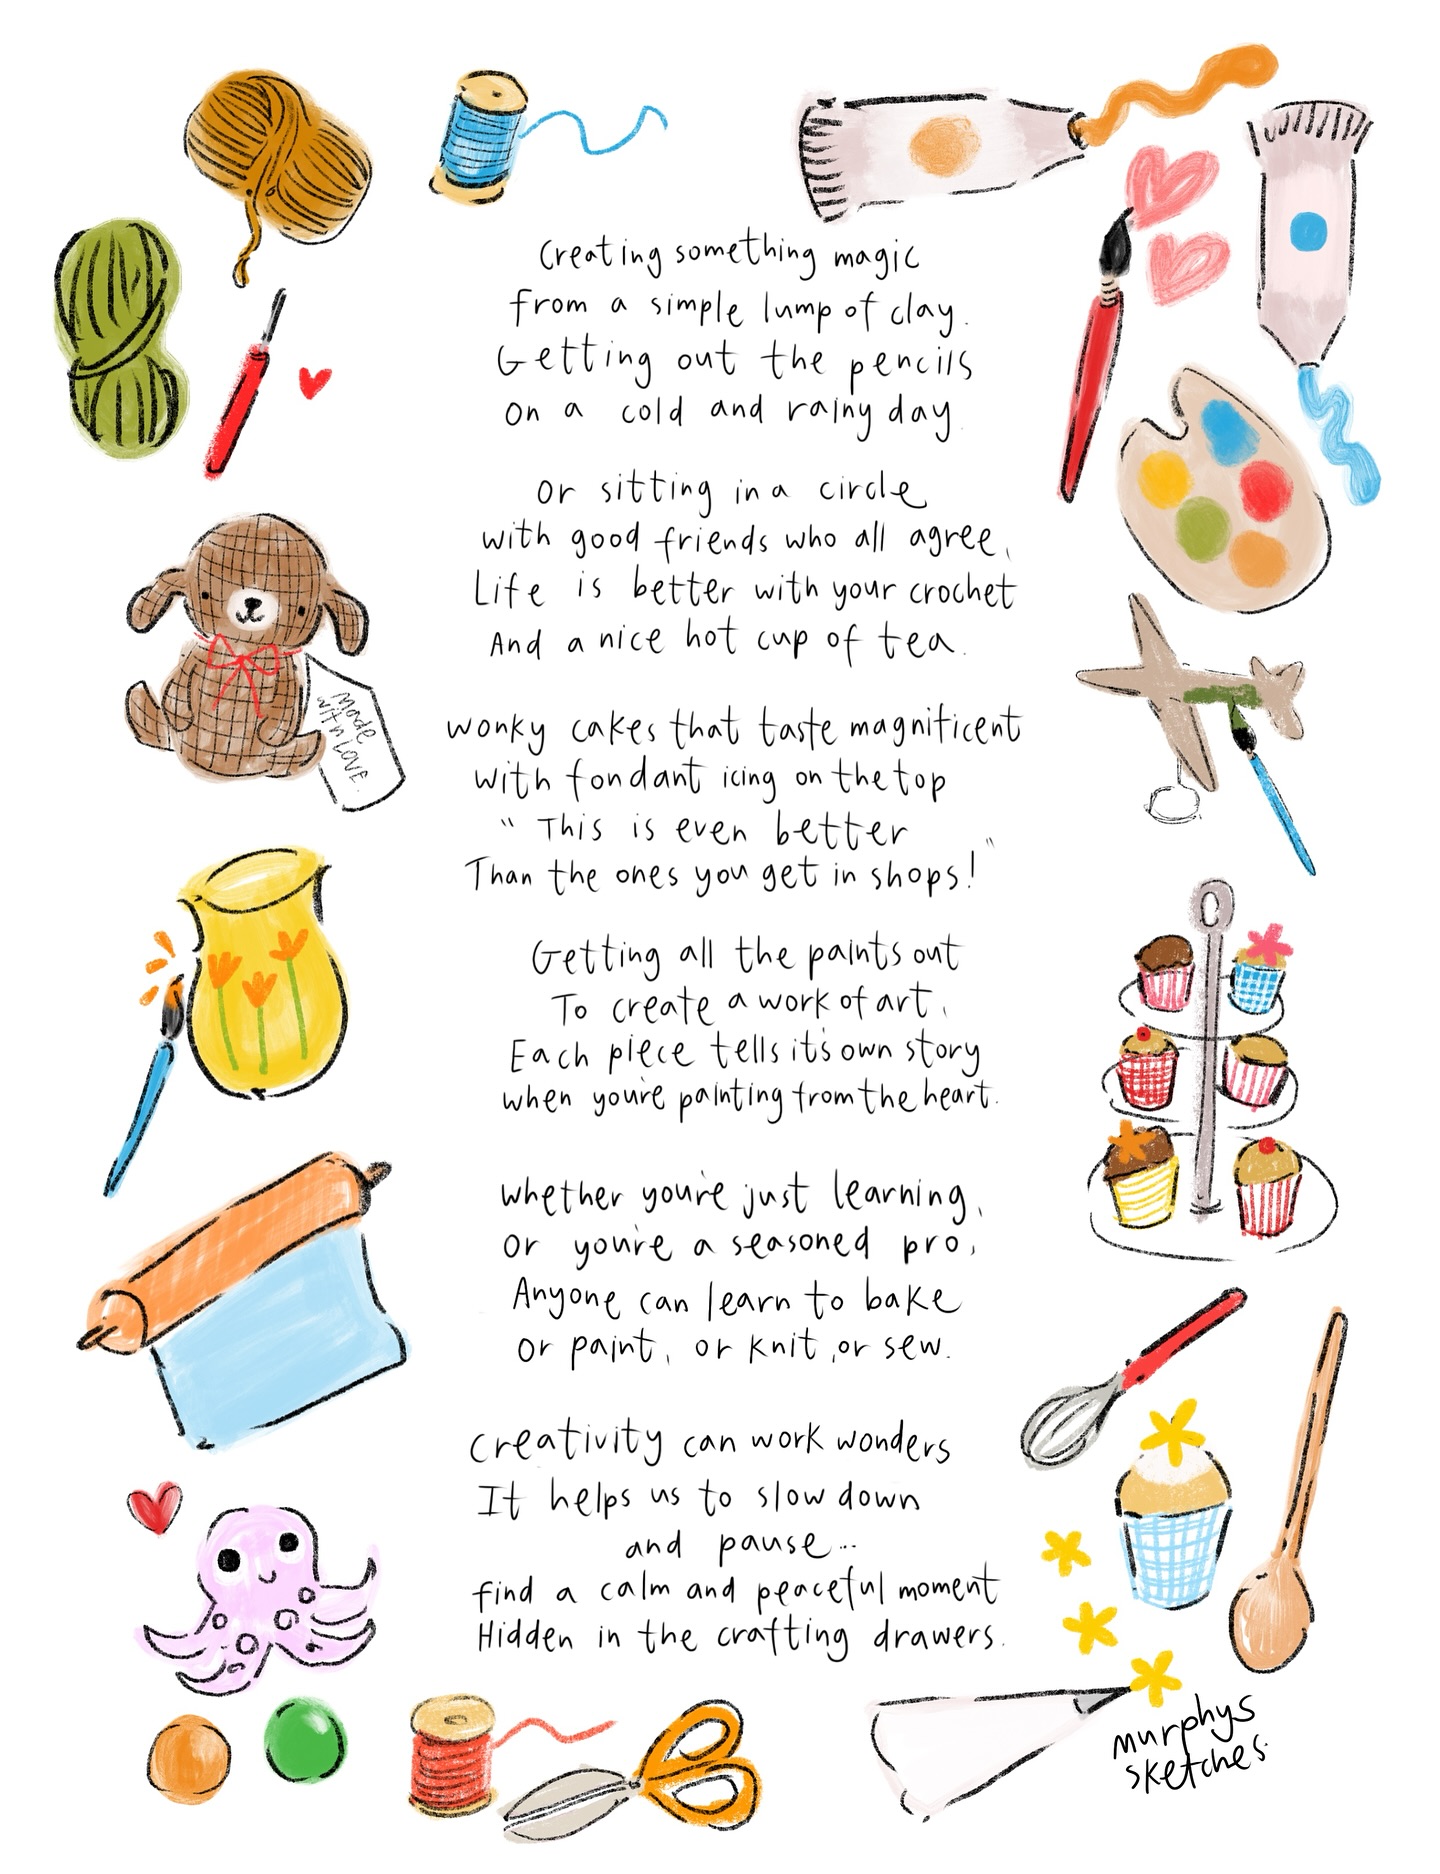 Creating something magic
from a simple lump of clay.
Getting out the pencils
on a cold and rainy day.
Or sitting in a circle
with good friends who all agree,
Life is better with your crochet
And a nice hot cup of tea.
Made
with love.
Wonky cakes that taste magnificent
with fondant icing on the top
"This is even better
Than the ones you get in shops!"
Getting all the paints out
To create a work of art,
Each piece tells it's own story
when you're painting from the heart.
Whether you're just learning,
Or you're a seasoned pro,
Anyone can learn to bake
Or paint, or knit, or sew.
Creativity can work wonders
It helps us to slow down
and pause...
find a calm and peaceful moment
Hidden in the crafting drawers.
murphys
sketches.